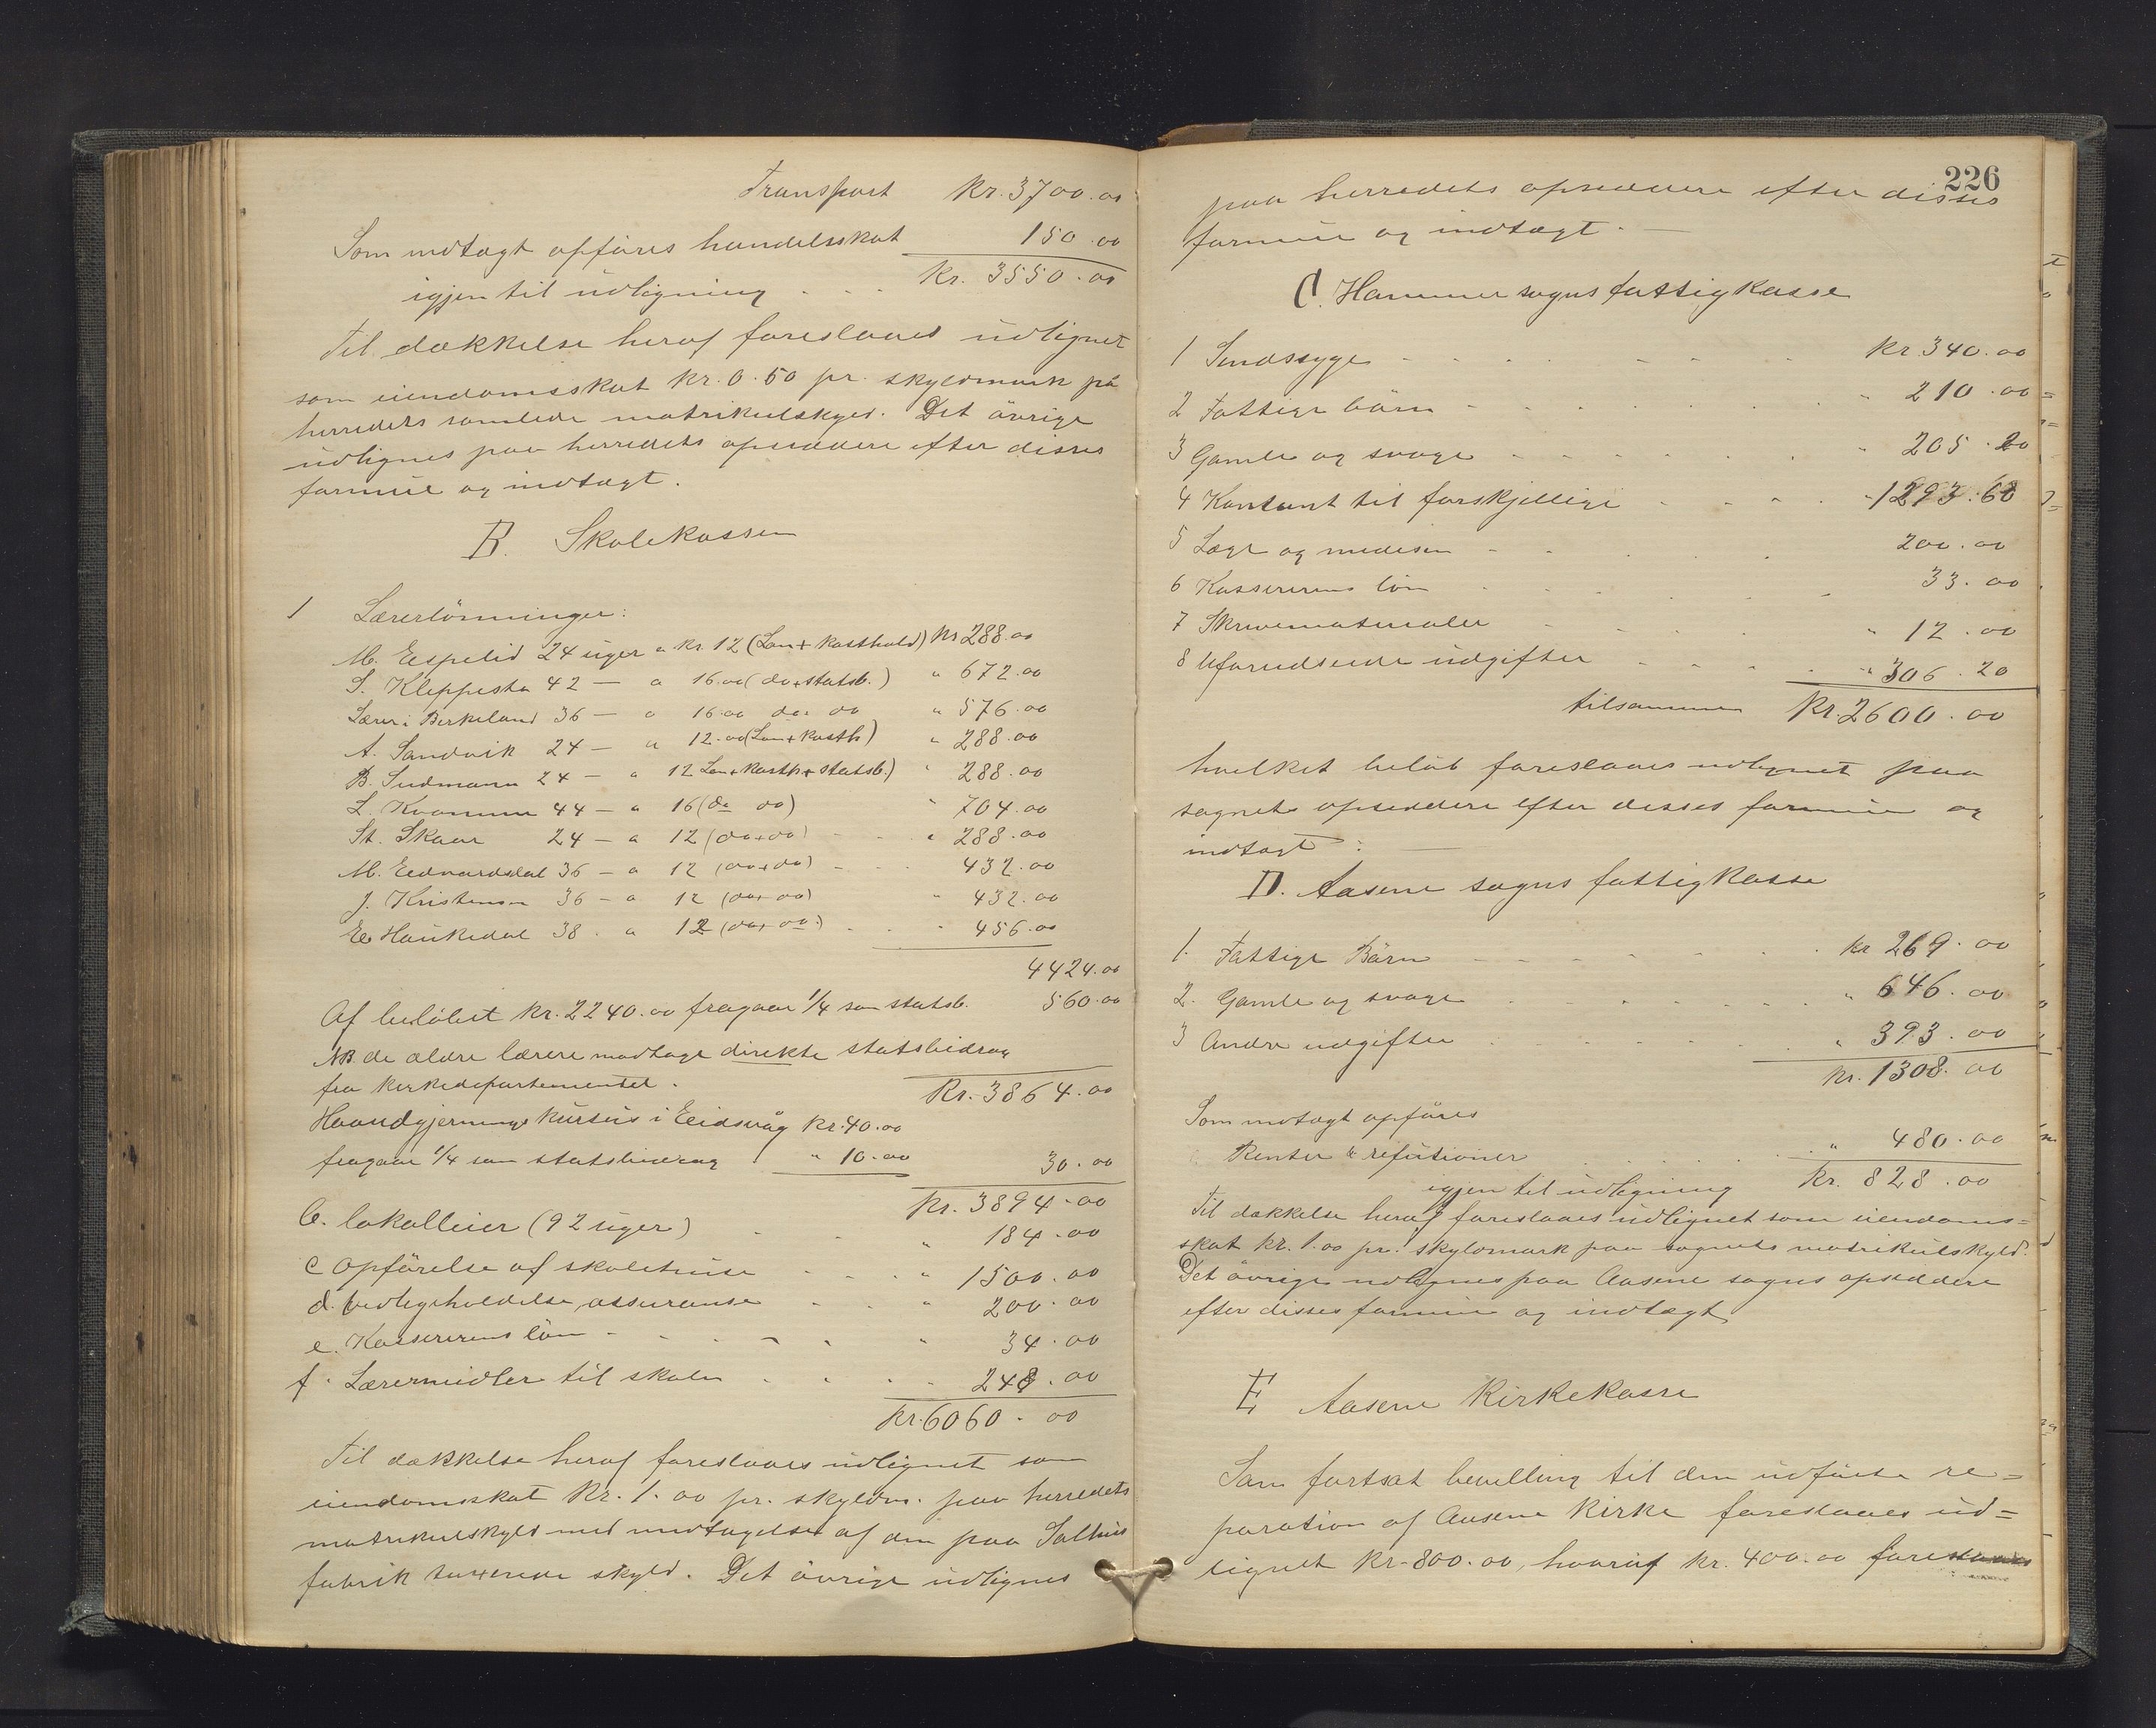 Transport Kr. 3700.00
Som indtægt opføres handelsskat 150.00
igjen til udligning . . . Kr. 3550.00
Til dækkelse heraf foreslaaes udlignet
som eiendomsskat Kr. 0.50 pr. skyldmark på
herredets samlede matrikulskyld. Det øvrige
udlignes paa herredets opsiddere efter disses
formue og indtægt.
B. Skolekassen
1 Lærerlönninger:
M. Espelid 24 uger a Kr. 12 (Løn + kosthold) Kr 288.00
S. Kleppestø 42 — a 16.00 (do + statsb.) " 672.00
Lærer i Birkeland 36 — a 16.00 do. do " 576.00
A. Sandvik 24 — a 12.00 (Løn + kosth) " 288.00
B. Sudmann 24 — a 12 Løn + kosth + statsb.) " 288.00
L. Kvamme 44 — a 16 (do do) " 704.00
St. Skaar 24 — a 12 (do + do) " 288.00
M. Edvardsdal 36 — a 12 (do + do) 432.00
J. Kristensen 36 — a 12 (do + do) " 432.00
E. Haukedal 38 . a 12 (do + do.) 456.00
4424.00
Af beløbet Kr. 2240.00 fragaar 1/4 som statsb. 560.00
NB de ældre lærere modtage direkte statsbidrag
fra Kirkedepartementet. Kr. 3864.00
Haandgjernings kursus i Eidsvåg Kr. 40.00
fragaar 1/4 som statsbidrag " 10.00 30.00
Kr. 3894.00
b. lokalleier (92 uger) " 184.00
c Opførelse af skolehuse " 1500.00
d. Vedligeholdelse, assuranse " 200.00
e. Kassererens løn " 34.00
f. Lærermidler til skolen 248.00
Kr. 6060.00
Til dækkelse heraf foreslaaes udlignet som
eiendomsskat Kr. 1.00 pr. skyldm. paa herredets
matrikulskyld med undtagelse af den paa Salhus
fabrik taxerede skyld. Det øvrige udlignes
226
paa herredets opsiddere efter disses
formue og indtægt. —
C. Hammer sogns fattigkasse
1 Sindssyge Kr. 340.00
2 Fattige börn " 210.00
3 Gamle og svage " 205.20
4 Kontant til forskjellige " 1293.60
5 Læge og medesin 200.00
6 Kassererens løn 33.00
7 Skrivematerialer " 12.00
8 Uforudseede udgifter " 306.20
tilsammen Kr. 2600.00
hvilket beløb foreslaaes udlignet paa
sognets opsiddere efter disses formue og
indtægt: —
D. Aasene sogns fattigkasse
1. Fattige Börn Kr 269.00
2. Gamle og svage " 646.00
3 Andre udgifter " 393.00
Kr. 1308.00
Som indtægt opføres
Renter & refusioner " 480.00
igjen til udligning Kr. 828.00
Til dækkelse heraf foreslaaes udlignet som eiendoms=
skat Kr. 1.00 pr. skyldmark paa sognets matrikulskyld.
Det øvrige udlignes paa Aasene sogns opsiddere
efter disses formue og indtægt
E Aasene Kirkekasse
Som fortsat bevilling til den udførte re=
paration af Aasene Kirke foreslaaes ud=
lignet Kr. 800.00, hvoraf Kr. 400.00 foreslaaes